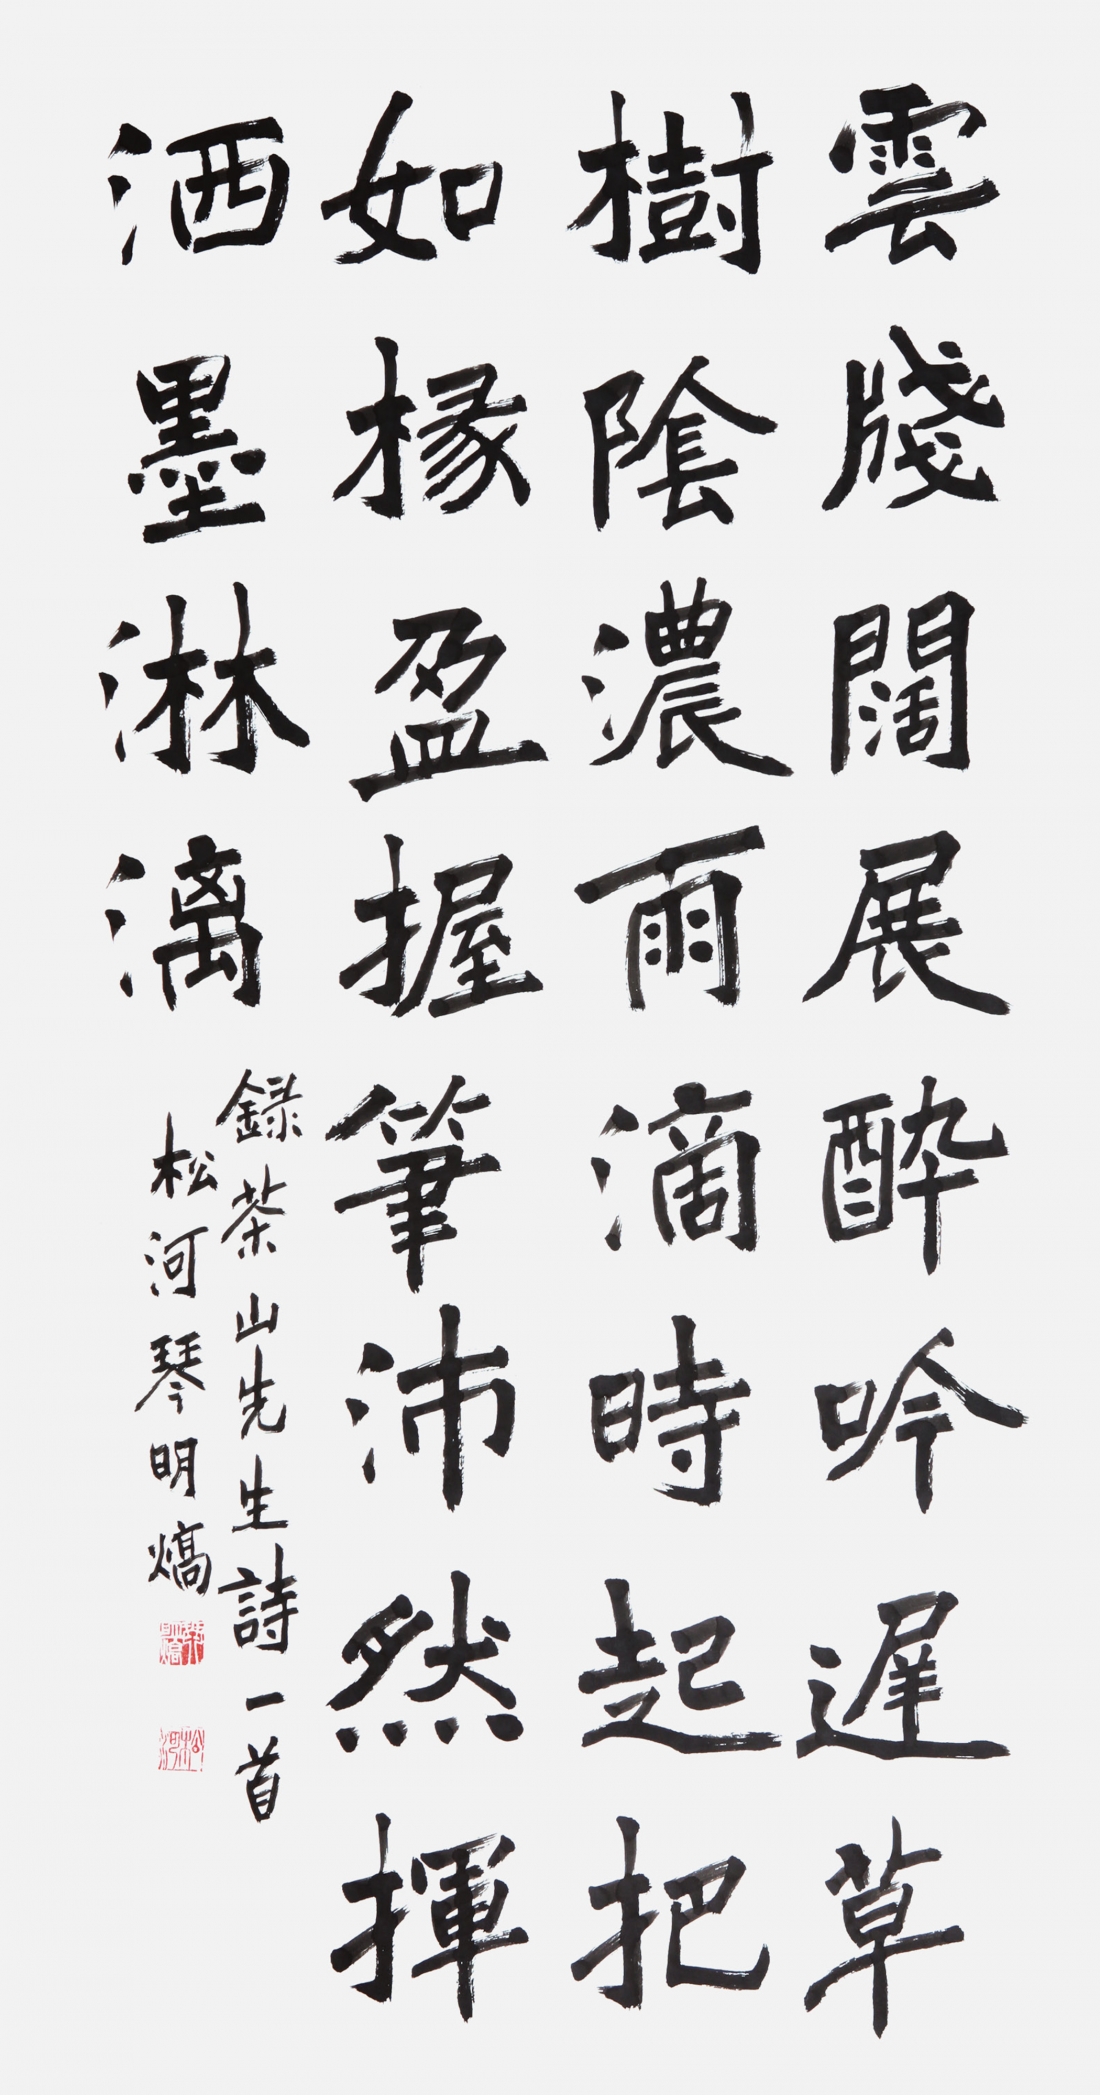 雲牋闊展醉吟遲草
樹陰濃雨滴時起把
如椽盈握筆沛然揮
洒墨淋漓
錄茶山先生詩一首
松河琴明熇
松河